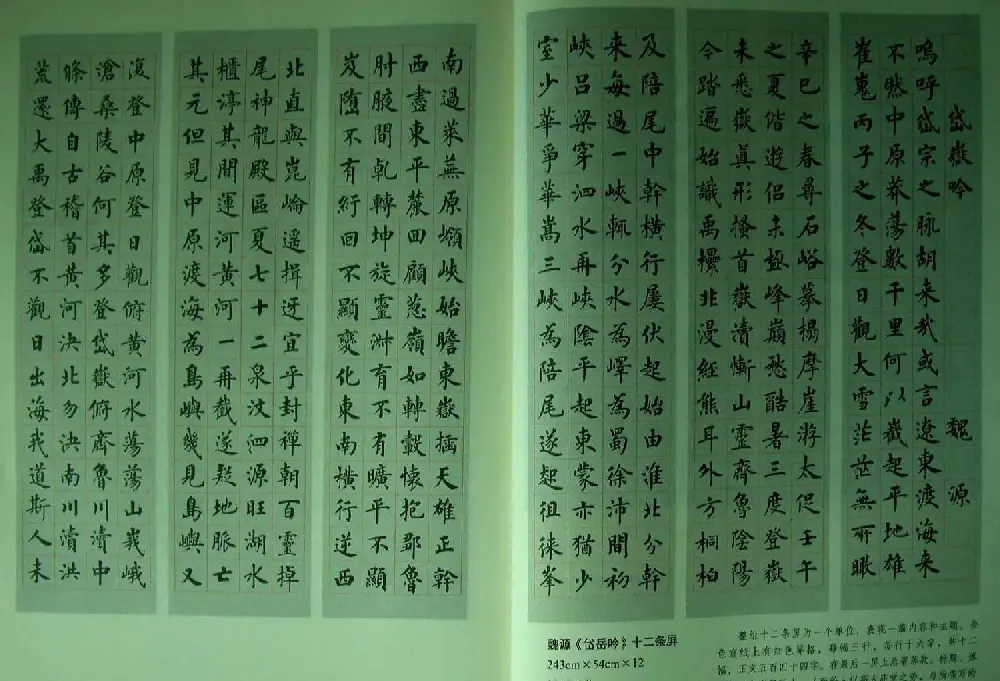 岱嶽吟 魏源
嗚呼岱宗之脉胡来哉或言遼東渡海来
不然中原莽蕩數千里何以截起平地雄
崔嵬丙子之冬登日觀大雪茫茫無所瞰
辛巳之春尋石峪摹榻摩崖游太促壬午
之夏偕遊侶未極峰巔愁酷暑三度登嶽
未悉嶽真形搔首嶽瀆慚山靈齊魯陰陽
今踏遍始識禹北漫經熊耳外方桐柏
及陪尾中幹橫行屢伏起始由淮北分幹
来每過一峽輒分水為嶧為蜀徐沛間初
峽呂梁穿泗水再峽陰平起東蒙亦猶少
室少華爭華嵩三峽為陪尾遂起徂徠峯
南過萊蕪原嶺峽始瞻東嶽插天雄正幹
西盡東平麓回顧嶺如轉轂懷抱鄒魯
肘腋間乾轉坤旋靈有不有曠平不顯
岌墮不有紆回不顯變化東南橫行逆西
北直與崑崙遥揖迓宜乎封禪朝百靈掉
尾神龍殿區夏七十二泉汶泗源旺湖水
櫃渟其間運河黃河一再截遂疑地脈亡
其元但見中原渡海為島嶼幾見島嶼又
復登中原登日觀俯黃河水蕩蕩山峩峨
滄桑陵谷何其多登岱嶽俯齊魯川瀆中
條傳自古稽首黃河決北勿決南川瀆洪
荒還大禹登岱不觀日出海我道斯人未
魏源《岱岳吟》十二条屏
243cm×54cm×12
整组十二条屏为一个单位，表现一篇内容和主题。金
色宣纸上有红色界格，每幅三行，每行十六字，共十二
幅，正文五百四十四字。在最后一屏上总署落款。